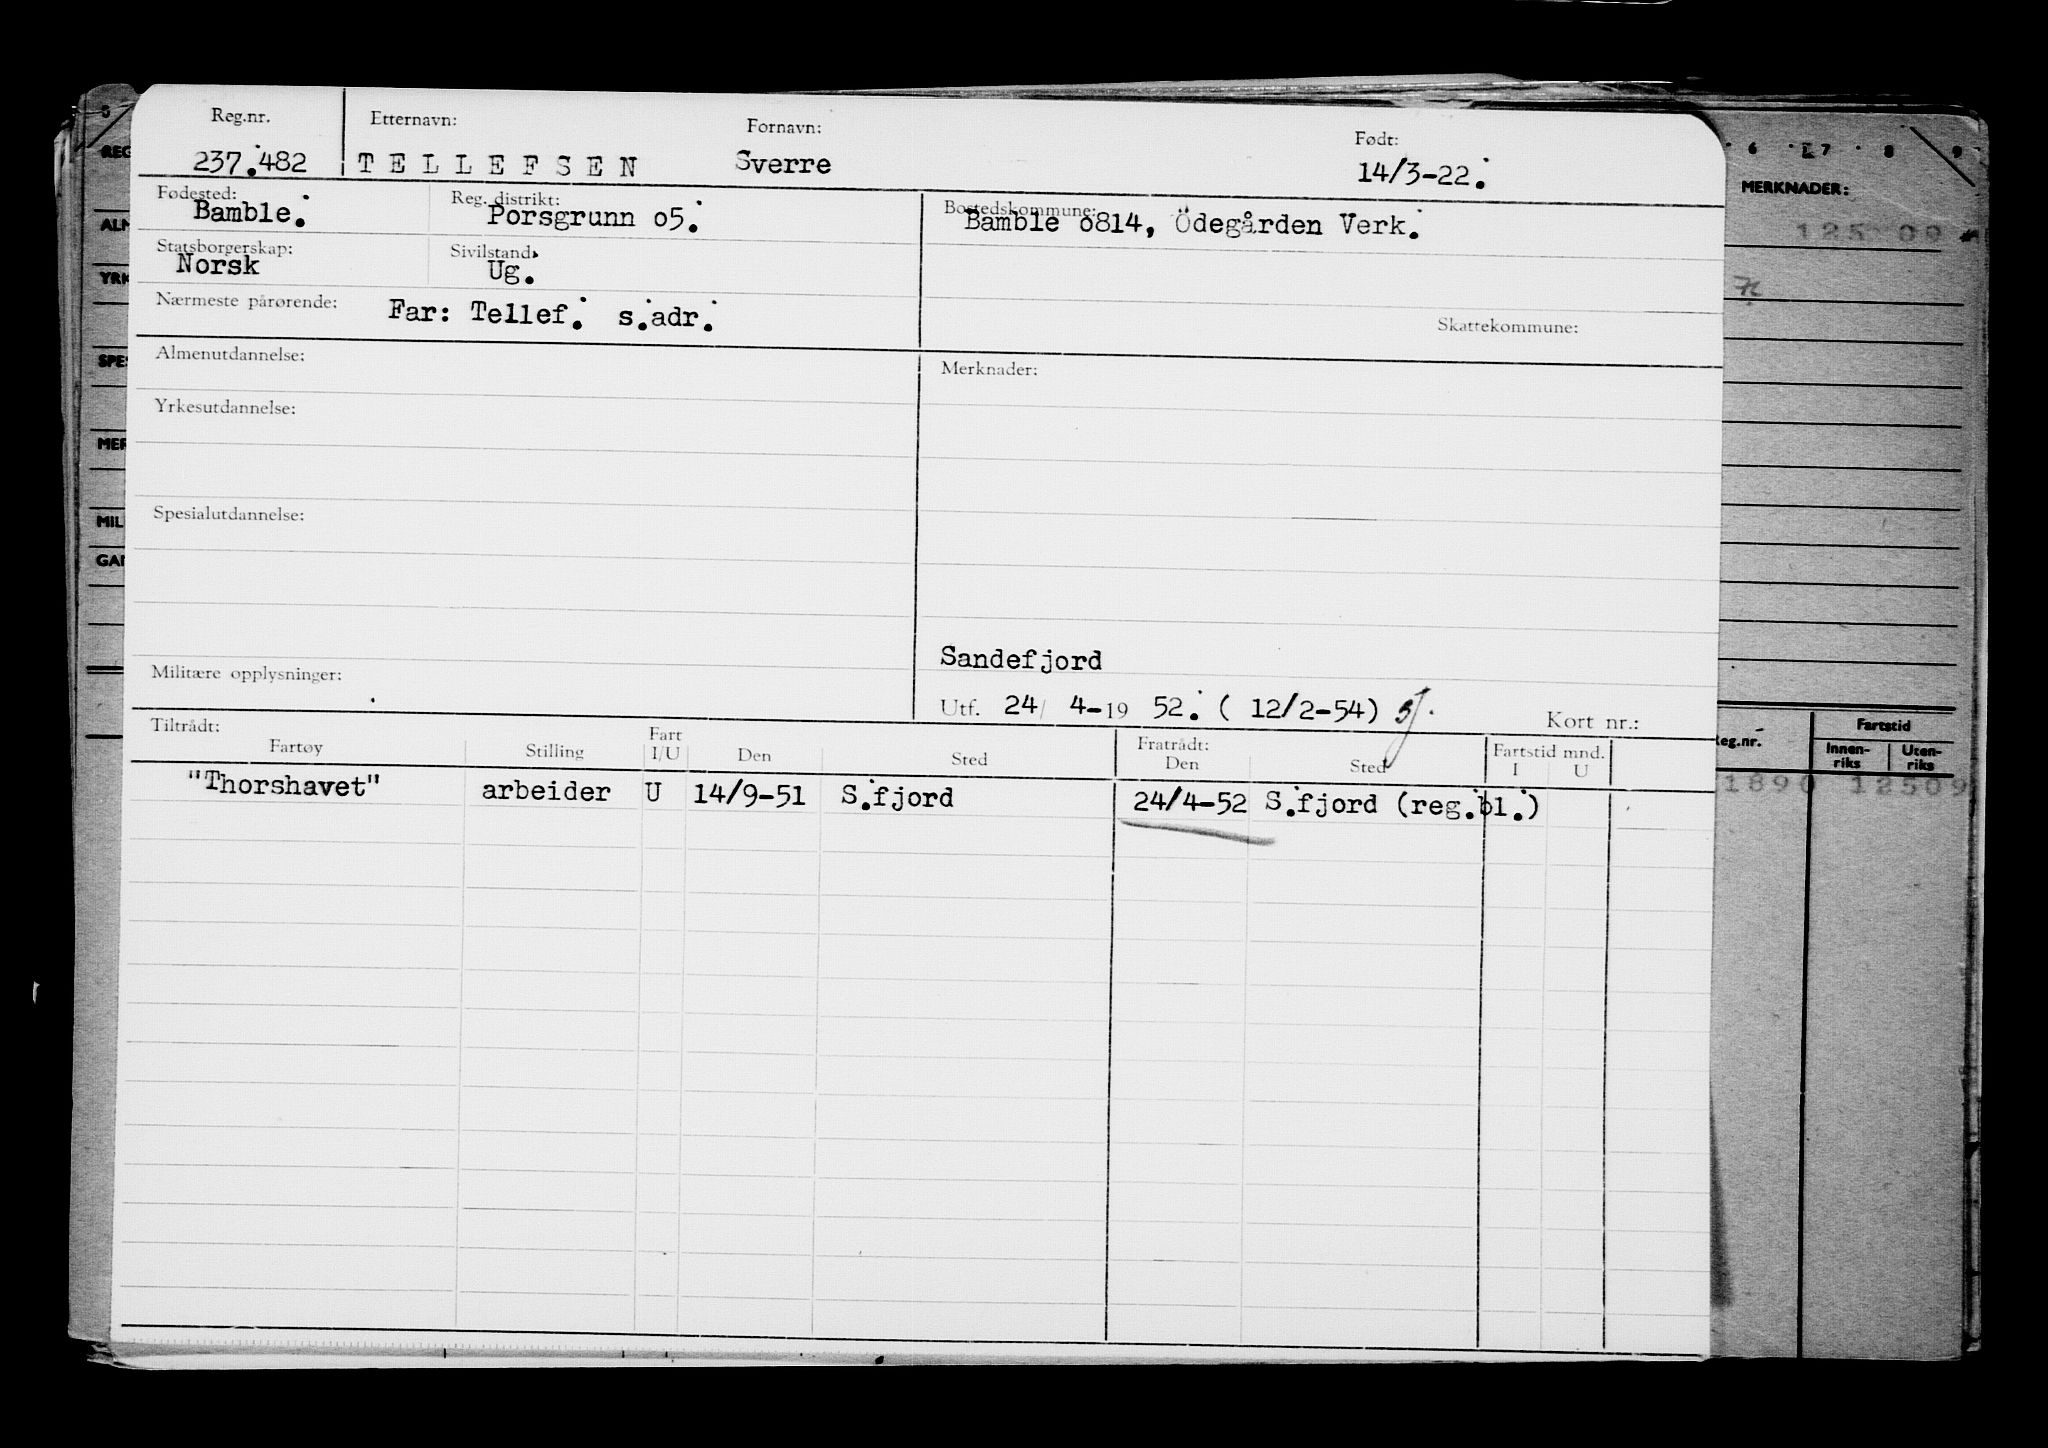 Reg.nr. Etternavn: Fornavn: Født:
237.482 TELLEFSEN Sverre 14/3-22.
Fødested: Reg. distrikt: Bostedskommune:
Bamble. Porsgrunn o5. Bamble o814, Ödegården Verk.
Statsborgerskap: Sivilstand:
Norsk Ug.
Nærmeste pårørende: Far: Tellef. s.adr.
Skattekommune:
Almenutdannelse: Merknader:
Yrkesutdannelse:
Spesialutdannelse:
Sandefjord
Militære opplysninger: Utf. 24/ 4-19 52. ( 12/2-54)
Kort nr.:
Tiltrådt: Fart Fratrådt: Fartstid mnd.
Fartøy Stilling I/U Den Sted Den Sted I U
"Thorshavet" arbeider U 14/9-51 S.fjord 24/4-52 S.fjord (reg.bl.)
6 7 8 9
MERKNADER:
125 09
Reg.nr. Fartstid
Innen-riks Uten-riks
1890 12509
REG
ALM
YRK
SPES
MER
MIL